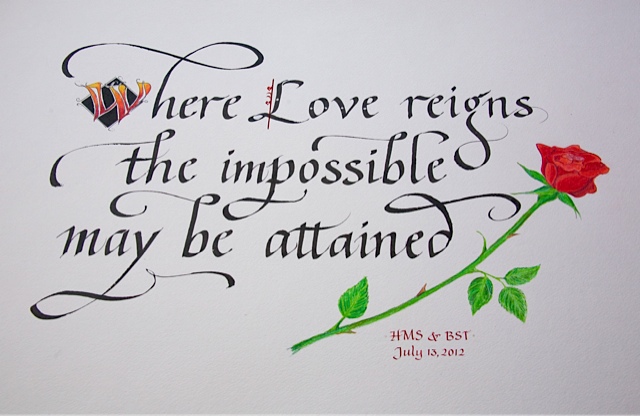 Where Love reigns
the impossible
may be attained
HMS & BST
July 13, 2012